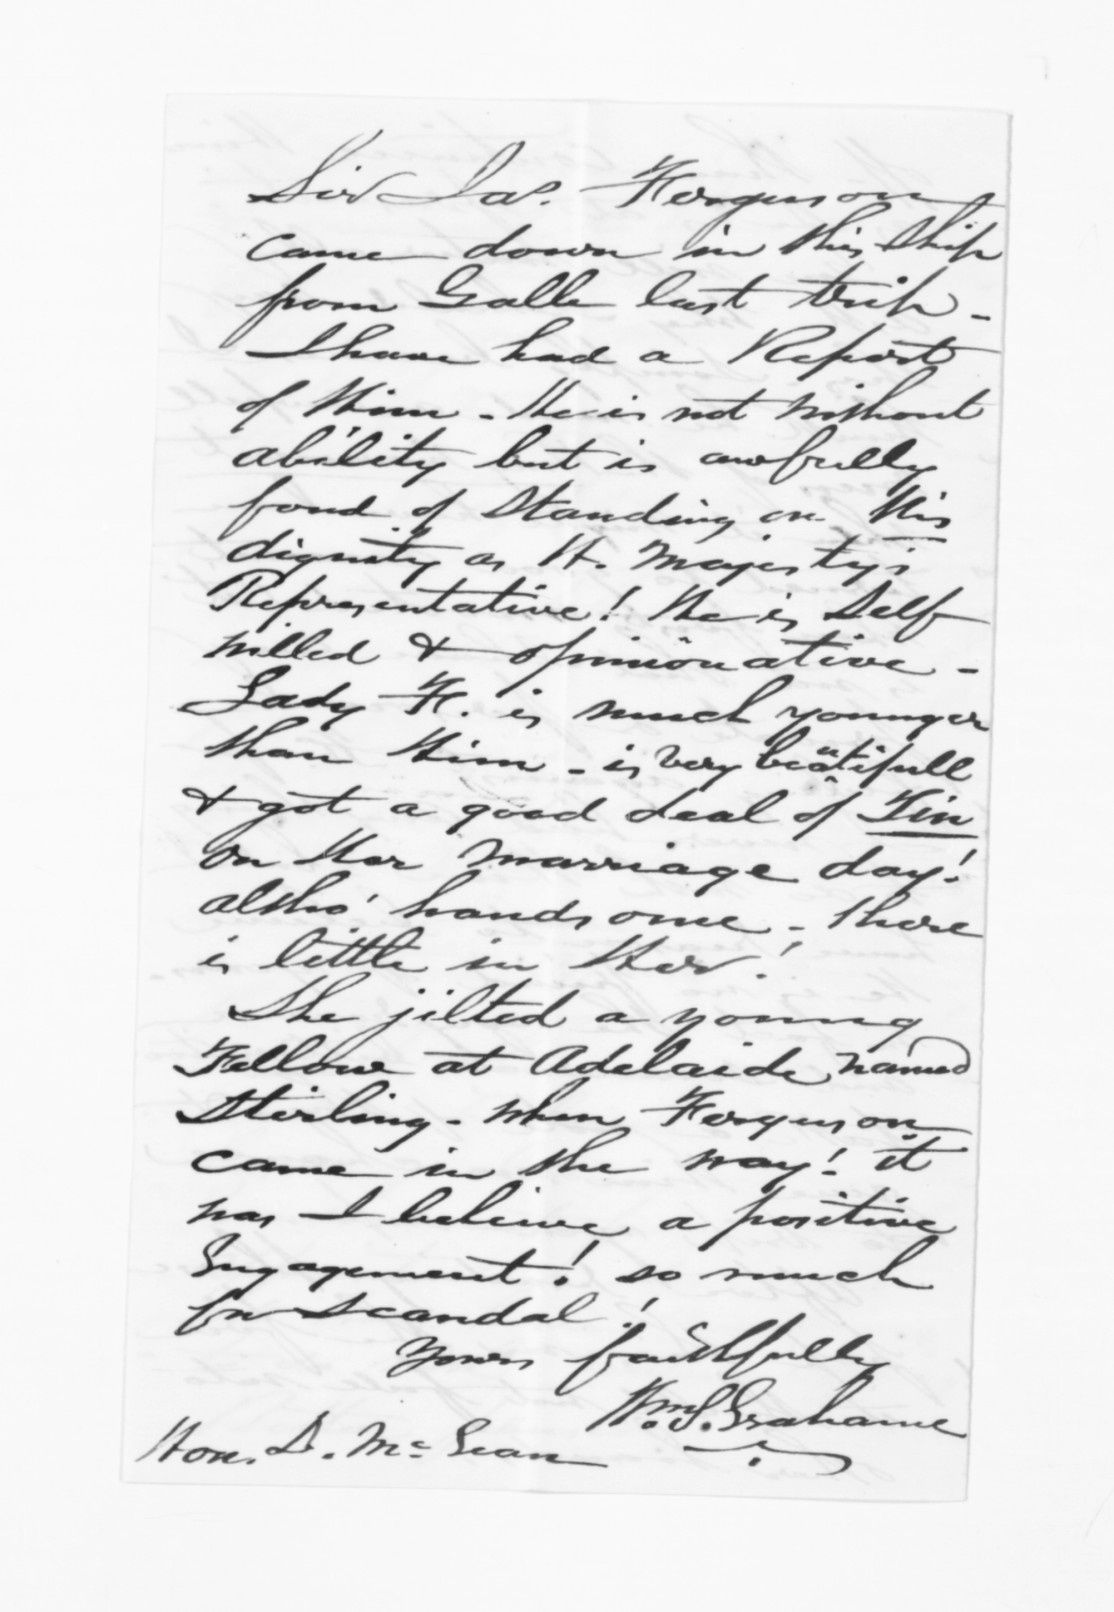 Sir Jas. Ferguson
came down in this ship
from Galle last trip -
I have had a Report
of Him - He is not without
ability but is awfully
fond of standing on His
dignity as H. Majesty's
Representative! He is self
willed & opinionative -
Lady F. is much younger
than Him - is very beautifull
& got a good deal of Tin
on Her marriage day!
altho' handsome - there
is little in Her!
She jilted a young
Fellow at Adelaide named
Stirling - when Ferguson
came in the way! it
was I believe a positive
Engagement! so much
for scandal!
Yours faithfully
Wm. S. Grahame
Hon. D. McLean